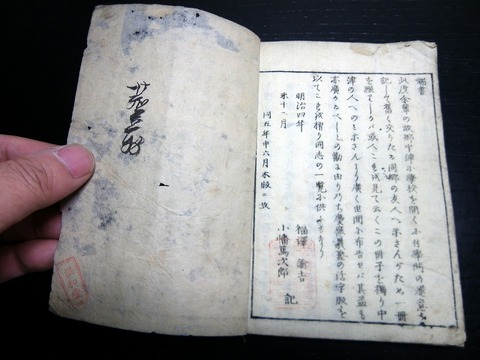 端書
此度余輩の故郷中津に學校を開くに付學問の趣意を
記して舊く交りたる同郷の友人へ示さんがため一冊
を綴りしかバ或人これを見て云くこの冊子を獨り中
津の人へのミ示さんより廣く世間に布告せバ其益も
亦廣かるべしとの勸に由り乃ち慶應義塾の活字版を
以てこれを摺り同志の一覧に供ふるなり
明治四年
未十二月
福澤諭吉
小幡篤次郎 記
同五年申六月木版ニ改